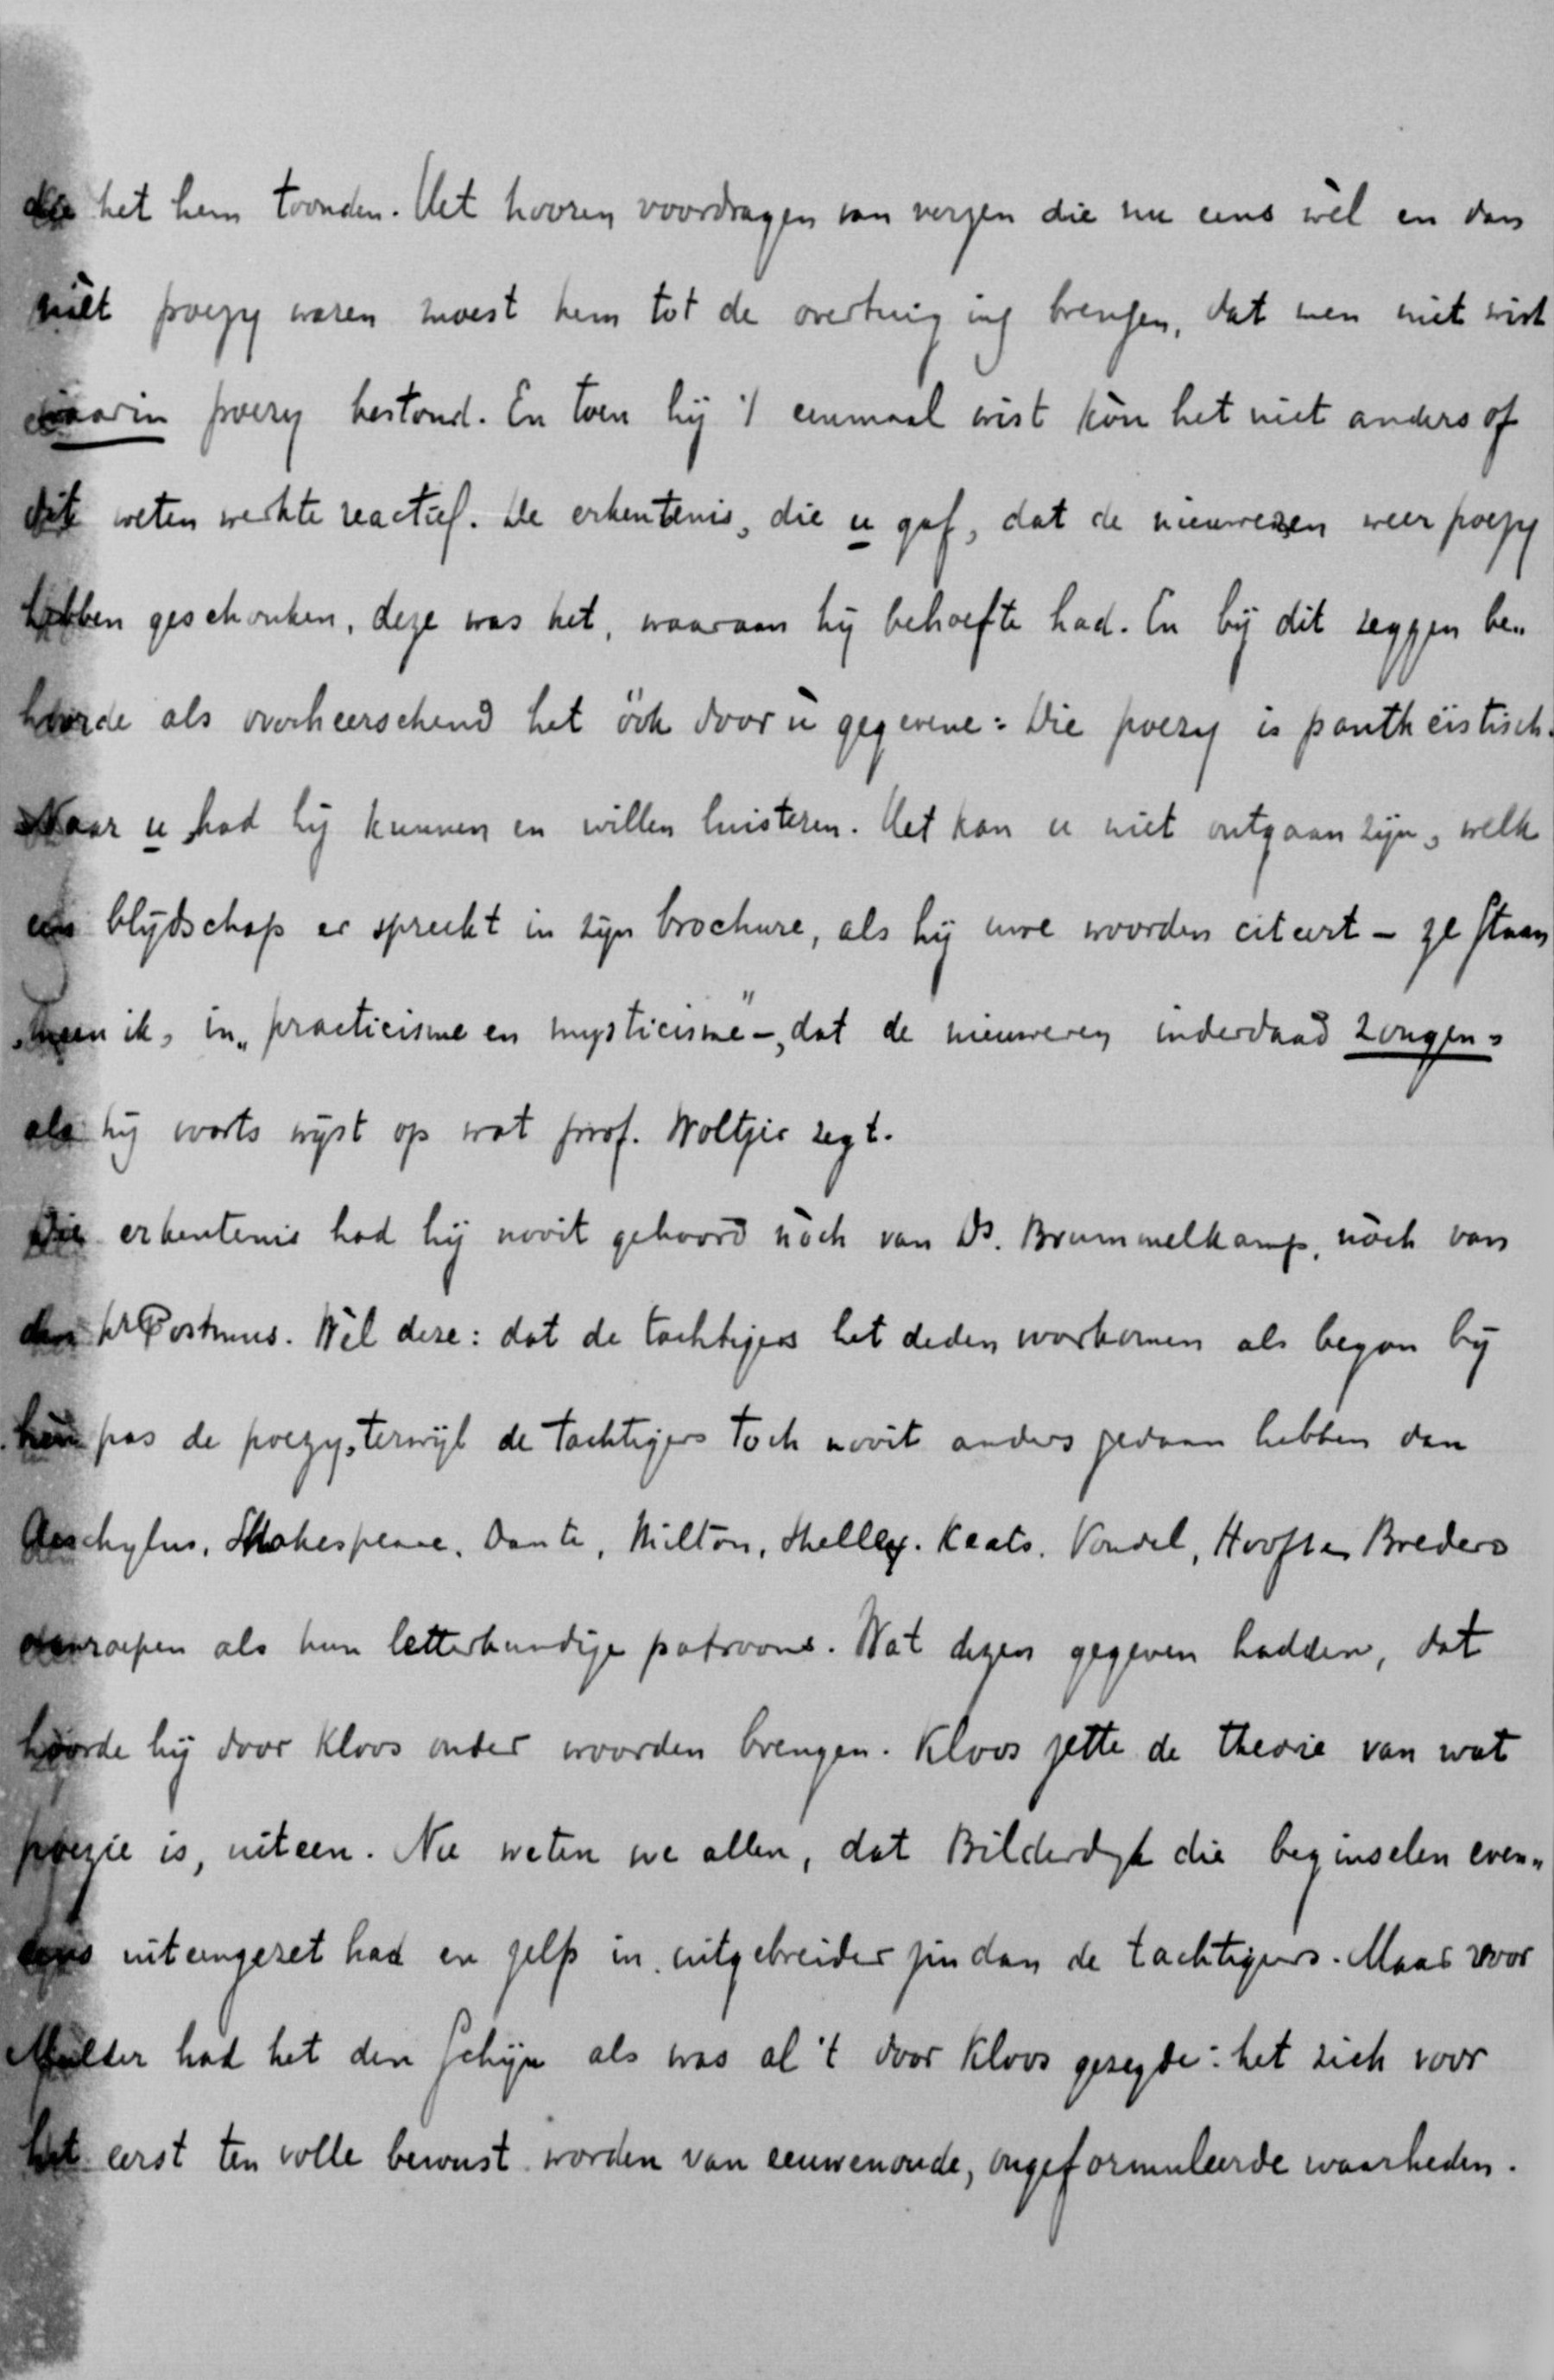 die het hem toonden. Het hooren voordragen van verzen die nu eens wèl en dan
nìèt poezy waren moest hem tot de overtuiging brengen, dat men niet wist
waarin poezy bestond. En toen hij 't eenmaal wist kòn het niet anders of
dit weten werkte reactief. De erkentenis, die u gaf, dat de nieuweren weer poezy
hebben geschonken, deze was het, waaraan hij behoefte had. En bij dit zeggen be„
hoorde als overheerschend het óók door ù gegevene: Die poezy is pantheïstisch.
Naar u had hij kunnen en willen luisteren. Het kan u niet ontgaan zijn, welk
een blijdschap er spreekt in zijn brochure, als hij uwe woorden citeert – ze staan
meen ik, in „practicisme en mysticisme" –, dat de nieuweren inderdaad zongen,
als hij voorts wijst op wat prof. Woltjer zegt.
Die erkentenis had hij nooit gehoord nòch van Ds. Brummelkamp, nòch van
den hr Postmus. Wèl deze: dat de tachtigers het deden voorkomen als begon bij
hèn pas de poezy, terwijl de tachtigers toch nooit anders gedaan hebben dan
Aeschylus, Shakespeare, Dante, Milton, Shelley. Keats. Vondel, Hooft en Bredero
aanroepen als hun letterkundige patroons. Wat dezen gegeven hadden, dat
hoorde hij door Kloos onder woorden brengen. Kloos zette de theorie van wat
poezie is, uiteen. Nu weten we allen, dat Bilderdyk die beginselen even„
eens uiteengezet had en zelfs in uitgebreider zin dan de tachtigers. Maar voor
Mulder had het den schijn als was al 't door Kloos gezegde: het zich voor
het eerst ten volle bewust worden van eeuwenoude, ongeformuleerde waarheden.